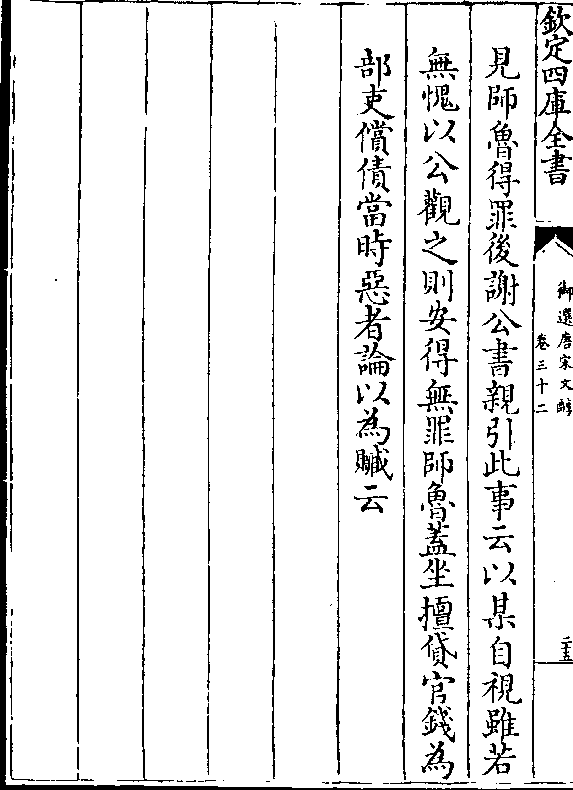 欽定四庫全書
御選唐宋文醇
卷三十二
二五
見師魯得罪後謝公書親引此事云以某自視雖若
無愧以公觀之則安得無罪師魯蓋坐擅貸官錢為
部吏償債當時惡者論以為贓云